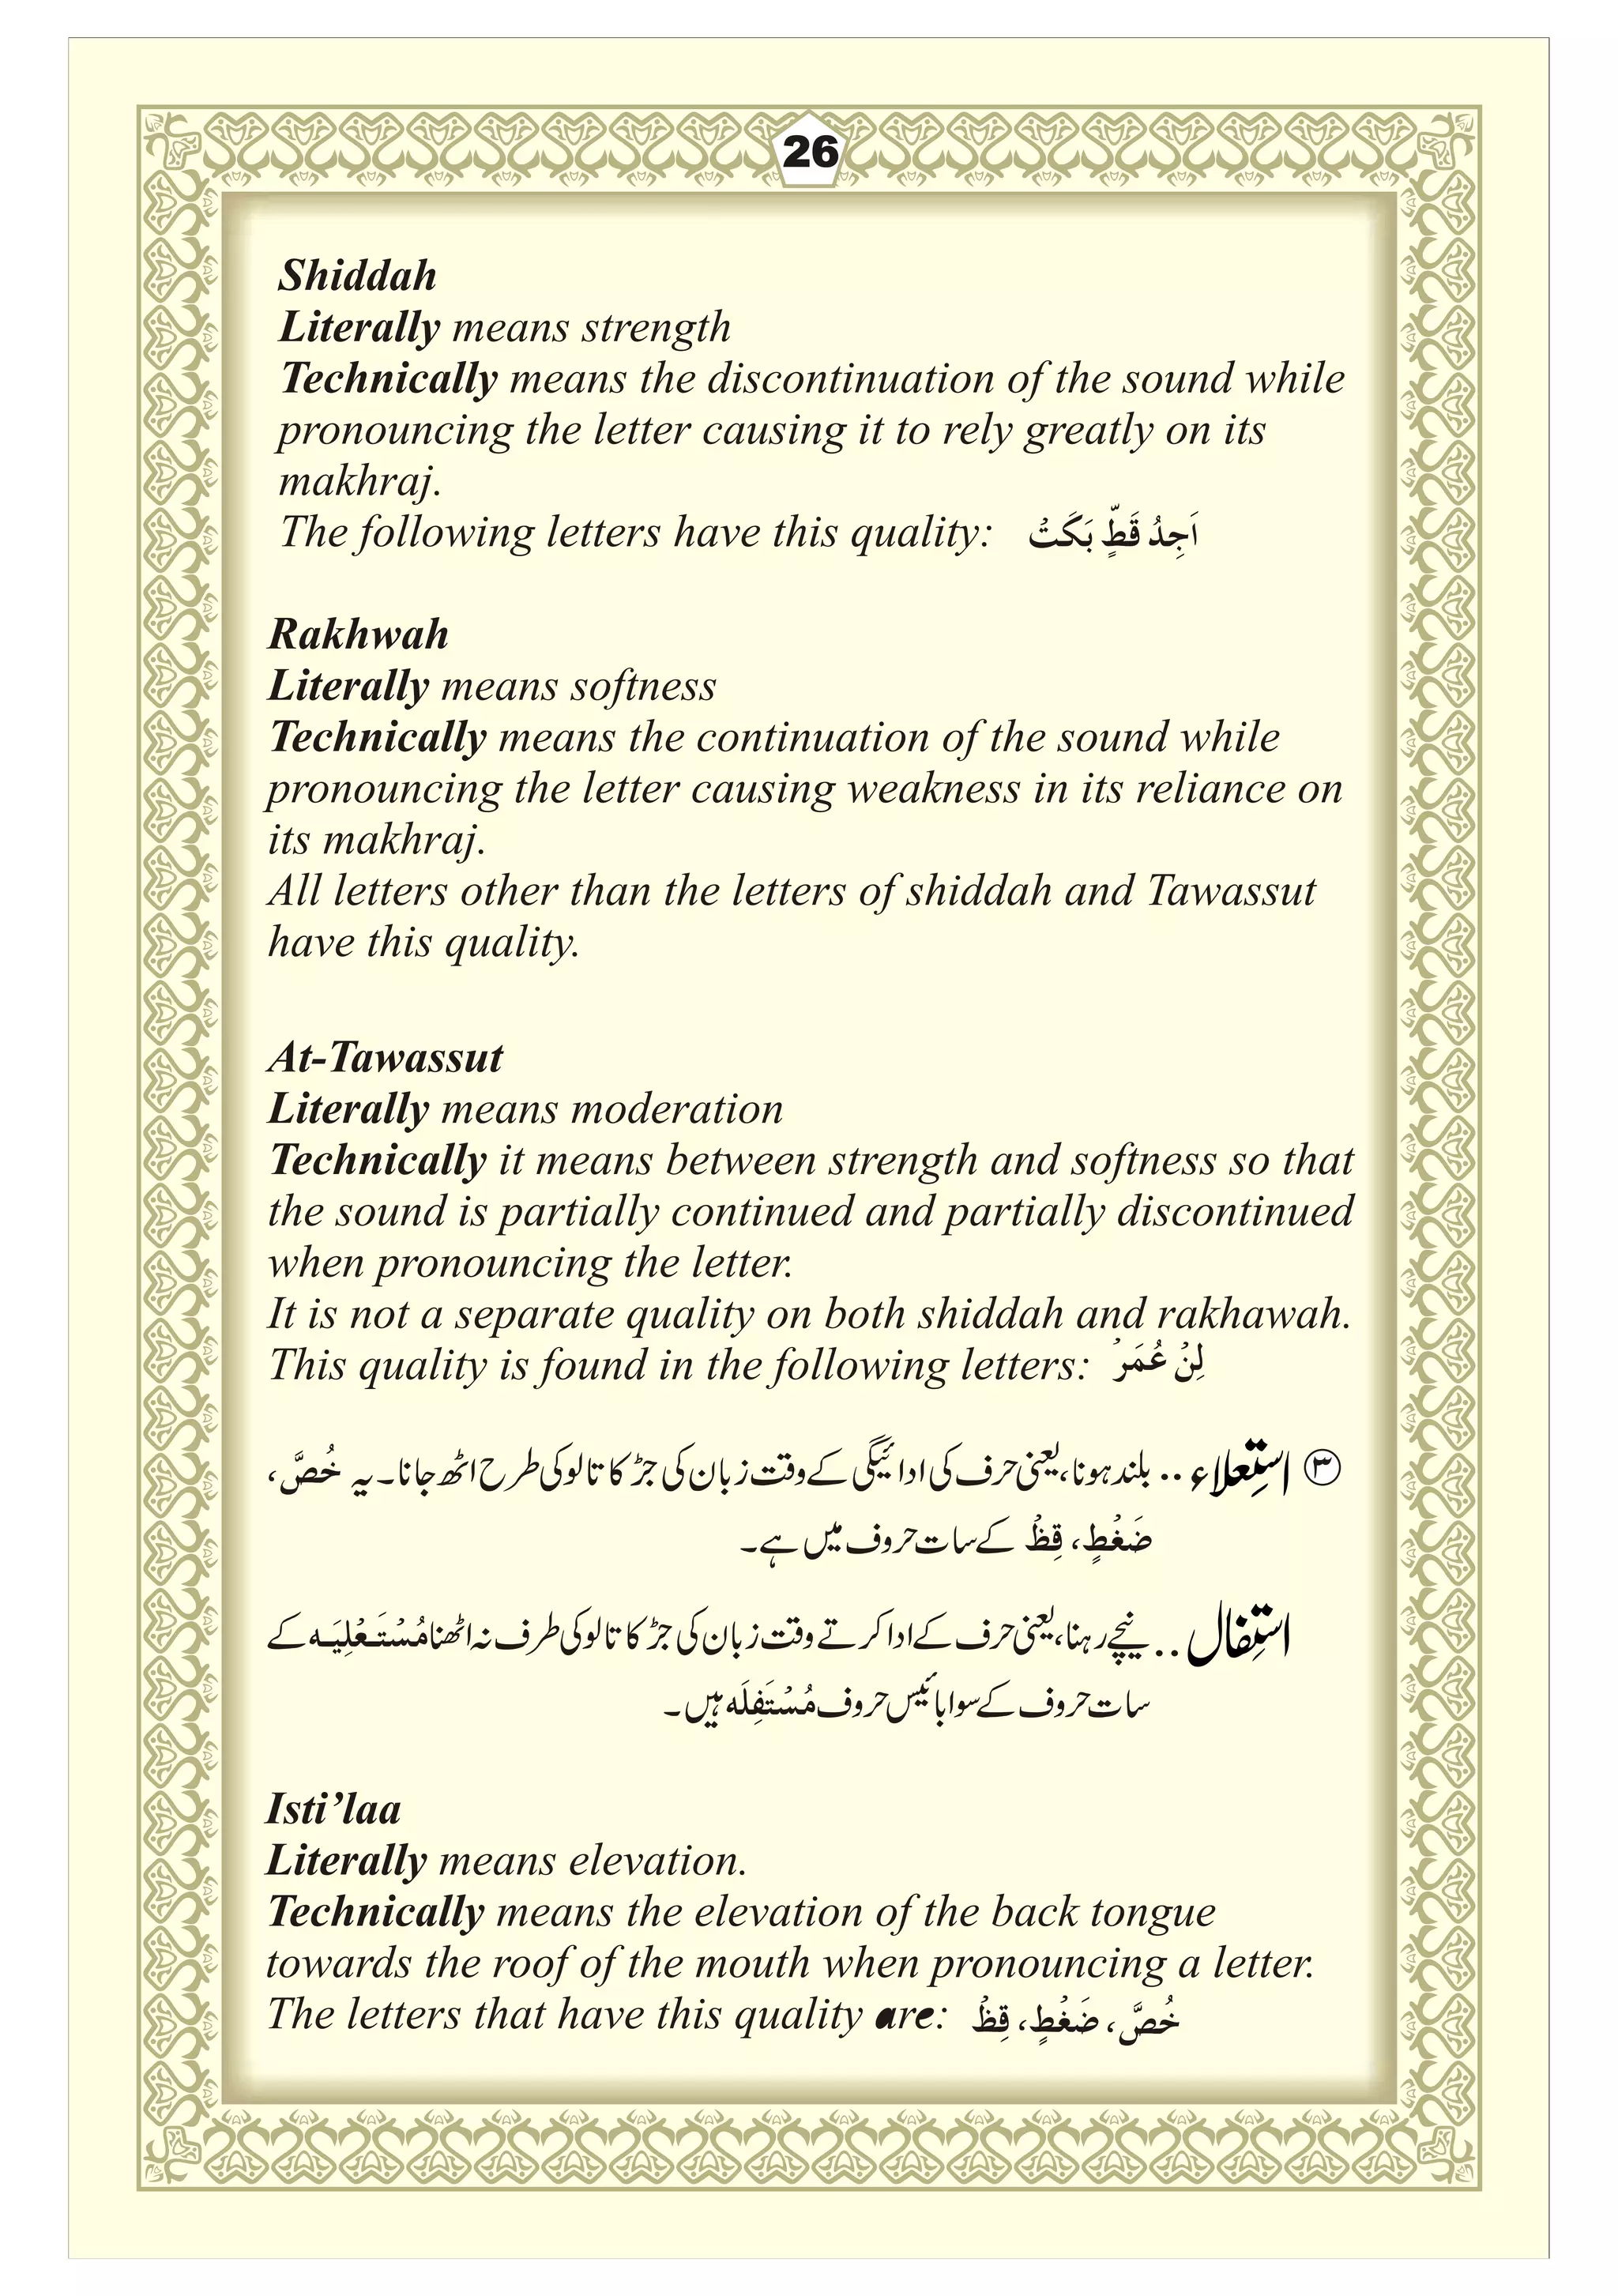 26
Shiddah
Literally means strength
Technically means the discontinuation of the sound while
pronouncing the letter causing it to rely greatly on its
makhraj.
The following letters have this quality: اَجِدُ قَطٍّ بَكَتْ
Rakhwah
Literally means softness
Technically means the continuation of the sound while
pronouncing the letter causing weakness in its reliance on
its makhraj.
All letters other than the letters of shiddah and Tawassut
have this quality.
At-Tawassut
Literally means moderation
Technically it means between strength and softness so that
the sound is partially continued and partially discontinued
when pronouncing the letter.
It is not a separate quality on both shiddah and rakhawah.
This quality is found in the following letters: لِنْ عُمَرْ
۳ اسْتِعْلاء .. بلند ہونا، یعنی حرف کی ادائیگی کے وقت زبان کی جڑ کا تالو کی طرح اٹھ جانا۔ یہ خُصَّ،
ضَغْطٍ، قِظْ کے سات حروف میں ہے۔
اسْتِفال .. نیچے رہنا، یعنی حرف کے ادا کرتے وقت زبان کی جڑ کا تالو کی طرف نہ اٹھنا مُسْتَعْلِیَہ کے
سات حروف کے سوا بائیس حروف مُسْتَفِلَہ ہیں۔
Isti’laa
Literally means elevation.
Technically means the elevation of the back tongue
towards the roof of the mouth when pronouncing a letter.
The letters that have this quality are: خُصَّ، ضَغْطٍ، قِظْ